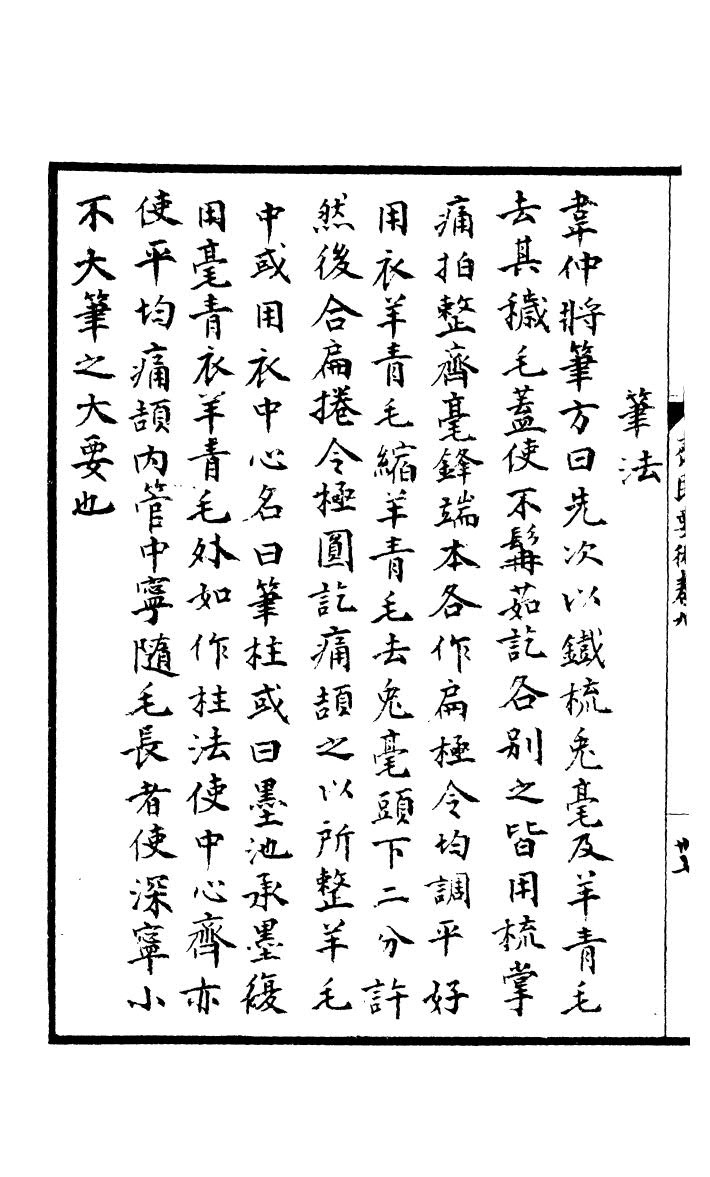 筆法
韋仲將筆方曰先次以鐵梳兎毫及羊青毛
去其穢毛蓋使不髯茹訖各別之皆用梳掌
痛拍整齊毫鋒端本各作扁極令均調平好
用衣羊青毛縮羊青毛去兎毫頭下二分許
然後合扁捲令極圓訖痛頡之以所整羊毛
中或用衣中心名曰筆柱或曰墨池承墨復
用毫青衣羊青毛外如作柱法使中心齊亦
使平均痛頡内管中寧隨毛長者使深寧小
不大筆之大要也
齊民要術卷九